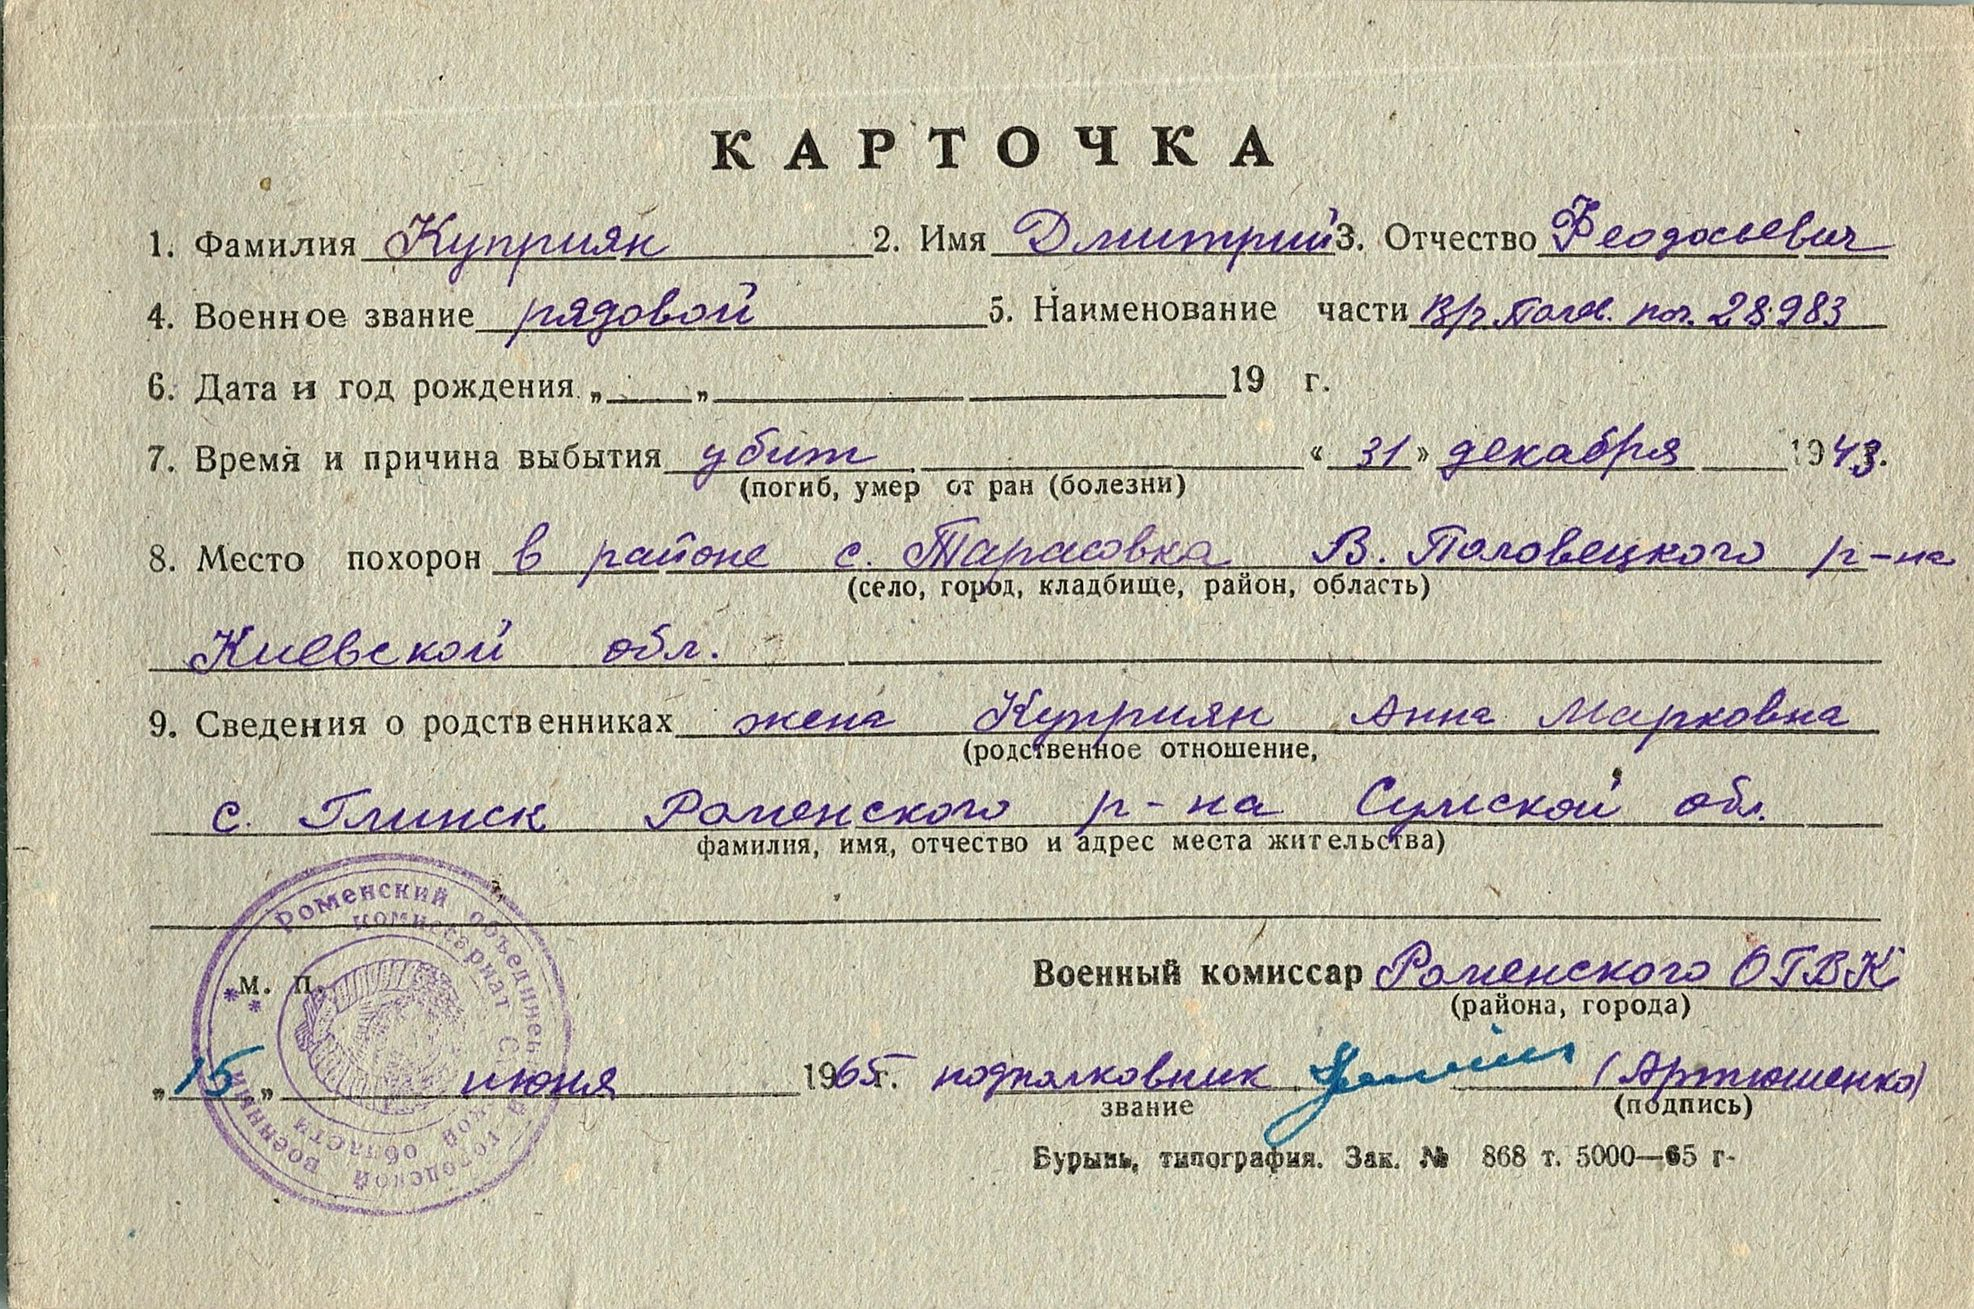 КАРТОЧКА
1. Фамилия Куприян 2. Имя Дмитрий 3. Отчество Феодосьевич
4. Военное звание рядовой 5. Наименование части 28.983
6. Дата и год рождения „ „ 19 г.
7. Время и причина выбытия убит « 31 » декабря 1943.
(погиб, умер от ран (болезни)
8. Место похорон в районе с. Тарасовка В. Половецкого р-на
(село, город, кладбище, район, область)
Киевской обл.
9. Сведения о родственниках жена Куприян Анна Марковна
(родственное отношение,
с. Глинск Роменского р-на Сумской обл.
фамилия, имя, отчество и адрес места жительства)
Роменский объединен городской военный
комиссариат Сумской области
м. п.
Военный комиссар Роменского ОГВК
(района, города)
„ 15 „ июня 1965 г. подполковник (Артюшенко)
звание (подпись)
Бурынь, типография. Зак. № 868 т. 5000—65 г-